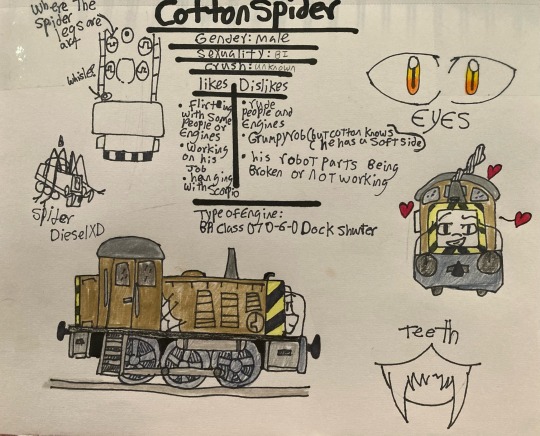 CottonSpider
Where The
Spider
legs are
at
whisle?
Gender: Male
Sexuality: BI
Crush: unknown
likes Dislikes
• Flirting
with some
People or
Engines
• Working
on his
Job
• hanging
with Scorpio
• rude
people and
Engines
• Grumpy Rob (but cotton knows
he has a soft side)
• his robot parts being
Broken or not working
EYES
Spider
Diesel XD
Type of Engine:
BR Class 07 0-6-0 Dock Shunter
Teeth